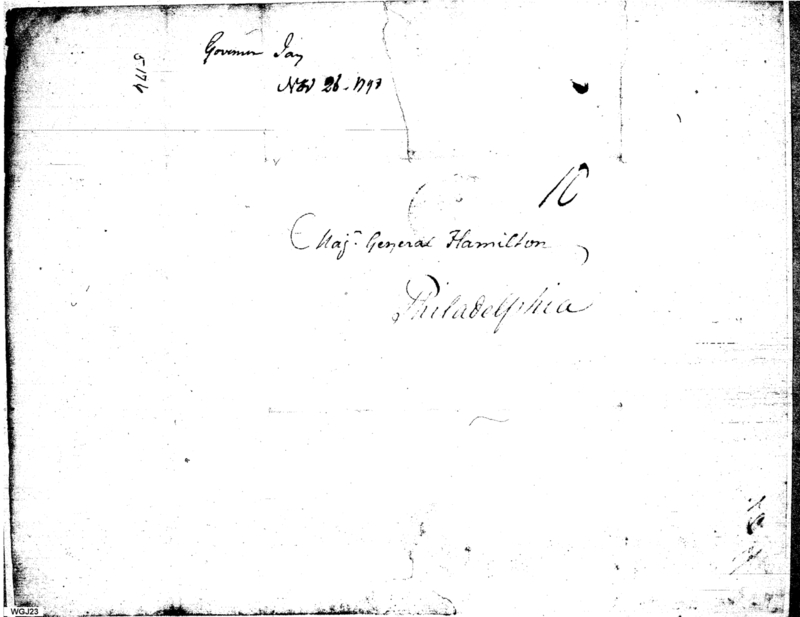 Governor Jay
Nov 26 - 1798
5174
10
Majr. General Hamilton
Philadelphia
WGJ23